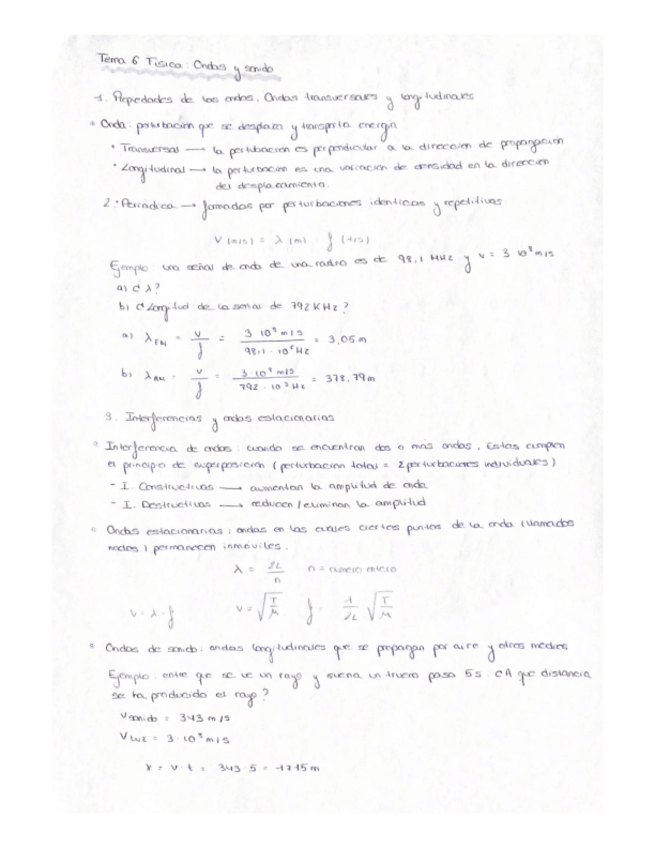 Tema 6 Física: Ondas y sonido
1. Propiedades de las ondas. Ondas transversales y longitudinales
* Onda: perturbación que se desplaza y transporta energía
* Transversal → la perturbación es perpendicular a la dirección de propagación
* Longitudinal → la perturbación es una variación de densidad en la dirección
del desplazamiento.
2. Periódica → formadas por perturbaciones idénticas y repetitivas
V (m/s) = λ (m) f (Hz)
Ejemplo: una señal de onda de una radio es de 98,1 MHz y v = 3 10⁸ m/s
a) ¿ λ?
b) ¿ Longitud de la señal de 792 KHz?
a) λFM = v/f = 3·10⁸ m/s / 98,1·10⁶ Hz = 3,05 m
b) λAM = v/f = 3·10⁸ m/s / 792·10³ Hz = 378,79 m
3. Interferencias y ondas estacionarias
* Interferencia de ondas: cuando se encuentran dos o más ondas, estas cumplen
el principio de superposición (perturbación total = Σ perturbaciones individuales)
- I. Constructivas → aumentan la amplitud de onda
- I. Destructivas → reducen/eliminan la amplitud
* Ondas estacionarias: ondas en las cuales ciertos puntos de la onda (llamados
nodos) permanecen inmóviles.
λ = 2L/n n = número entero
V = λ · f V = √(T/μ) f = 1/2L √(T/μ)
* Ondas de sonido: ondas longitudinales que se propagan por aire y otros medios
Ejemplo: entre que se ve un rayo y suena un trueno pasa 5s. ¿A que distancia
se ha producido el rayo?
V sonido = 343 m/s
V luz = 3·10⁸ m/s
x = v·t = 343·5 = 1715 m